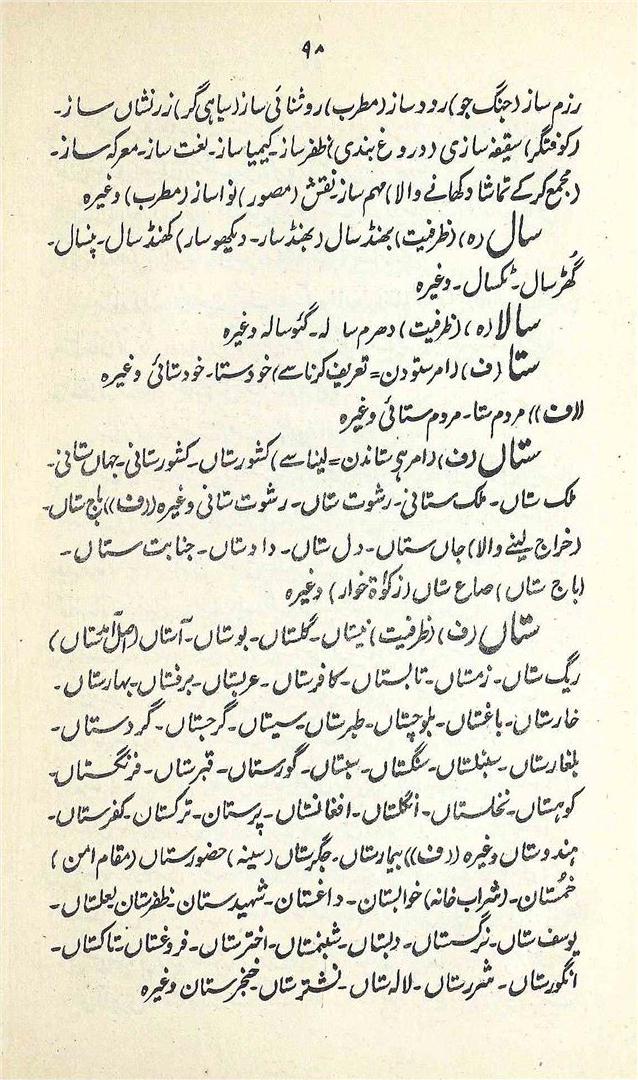 ۹۸
رزم ساز (جنگ جو) رود ساز (مطرب) روشنائی ساز (سیاہی گر) زرنشاں ساز۔
(کوفتگر) سقیفہ سازی (دروغ بندی) ظفر ساز۔ کیمیا ساز۔ لغت ساز۔ معرکہ ساز۔
(مجمع کر کے تماشا دکھانے والا) مہم ساز۔ نقش (مصور) نوا ساز (مطرب) وغیرہ
سال (ہ) (ظرفیت) بھنڈ سال (بھنڈ سار۔ دیکھو سار) کھنڈ سال۔ پنسال۔
گُھڑ سال۔ ٹکسال۔ وغیرہ
سالا (ہ) (ظرفیت) دھرم سالہ۔ گئو سالہ وغیرہ
ستا (ف) (امر ستودن = تعریف کرنا سے) خود ستا۔ خود ستائی وغیرہ
((ف)) مردم ستا۔ مردم ستائی وغیرہ
ستاں (ف) (امر ہی ستاندن = لینا سے) کشور ستاں۔ کشور ستانی۔ جہاں ستانی۔
ملک ستاں۔ ملک ستانی۔ رشوت ستاں۔ رشوت ستانی وغیرہ ((ف)) باج ستاں۔
(خراج لینے والا) جاں ستاں۔ دل ستاں۔ داد ستاں۔ جنابت ستاں۔
(باج ستاں) صاع ستاں (زکوٰۃ خوار) وغیرہ
ستاں (ف) (ظرفیت) نیستاں۔ گلستاں۔ بوستاں۔ آستاں (اصل
ریگ ستاں۔ زمستاں۔ تابستاں۔ کافرستاں۔ عربستاں۔ برفستاں۔ بہارستاں۔
خارستاں۔ باغستاں۔ بلوچستاں۔ طبرستاں۔ سیستاں۔ گرجستاں۔ گردستاں۔
بلغارستاں۔ سنبلستاں۔ سنگستاں۔ گورستاں۔ قبرستاں۔ فرنگستاں۔
کوہستاں۔ نخلستاں۔ انگلستاں۔ افغانستاں۔ پرستان۔ ترکستاں۔ کفرستاں۔
ہندوستاں وغیرہ ((ف)) بیمارستاں۔ جگرستاں (سینہ) حضورستاں (مقام امن)
خُمستان۔ (شراب خانہ) خوابستان۔ داغستان۔ شہیدستان۔ ظفرستان لعلستاں۔
یوسف ستاں۔ نرگستاں۔ دبستاں۔ شبنمستاں۔ اخترستاں۔ فروغستاں۔ تاکستاں۔
انگورستاں۔ شررستاں۔ لالہ ستاں۔ نشترستاں۔ خنجرستان وغیرہ